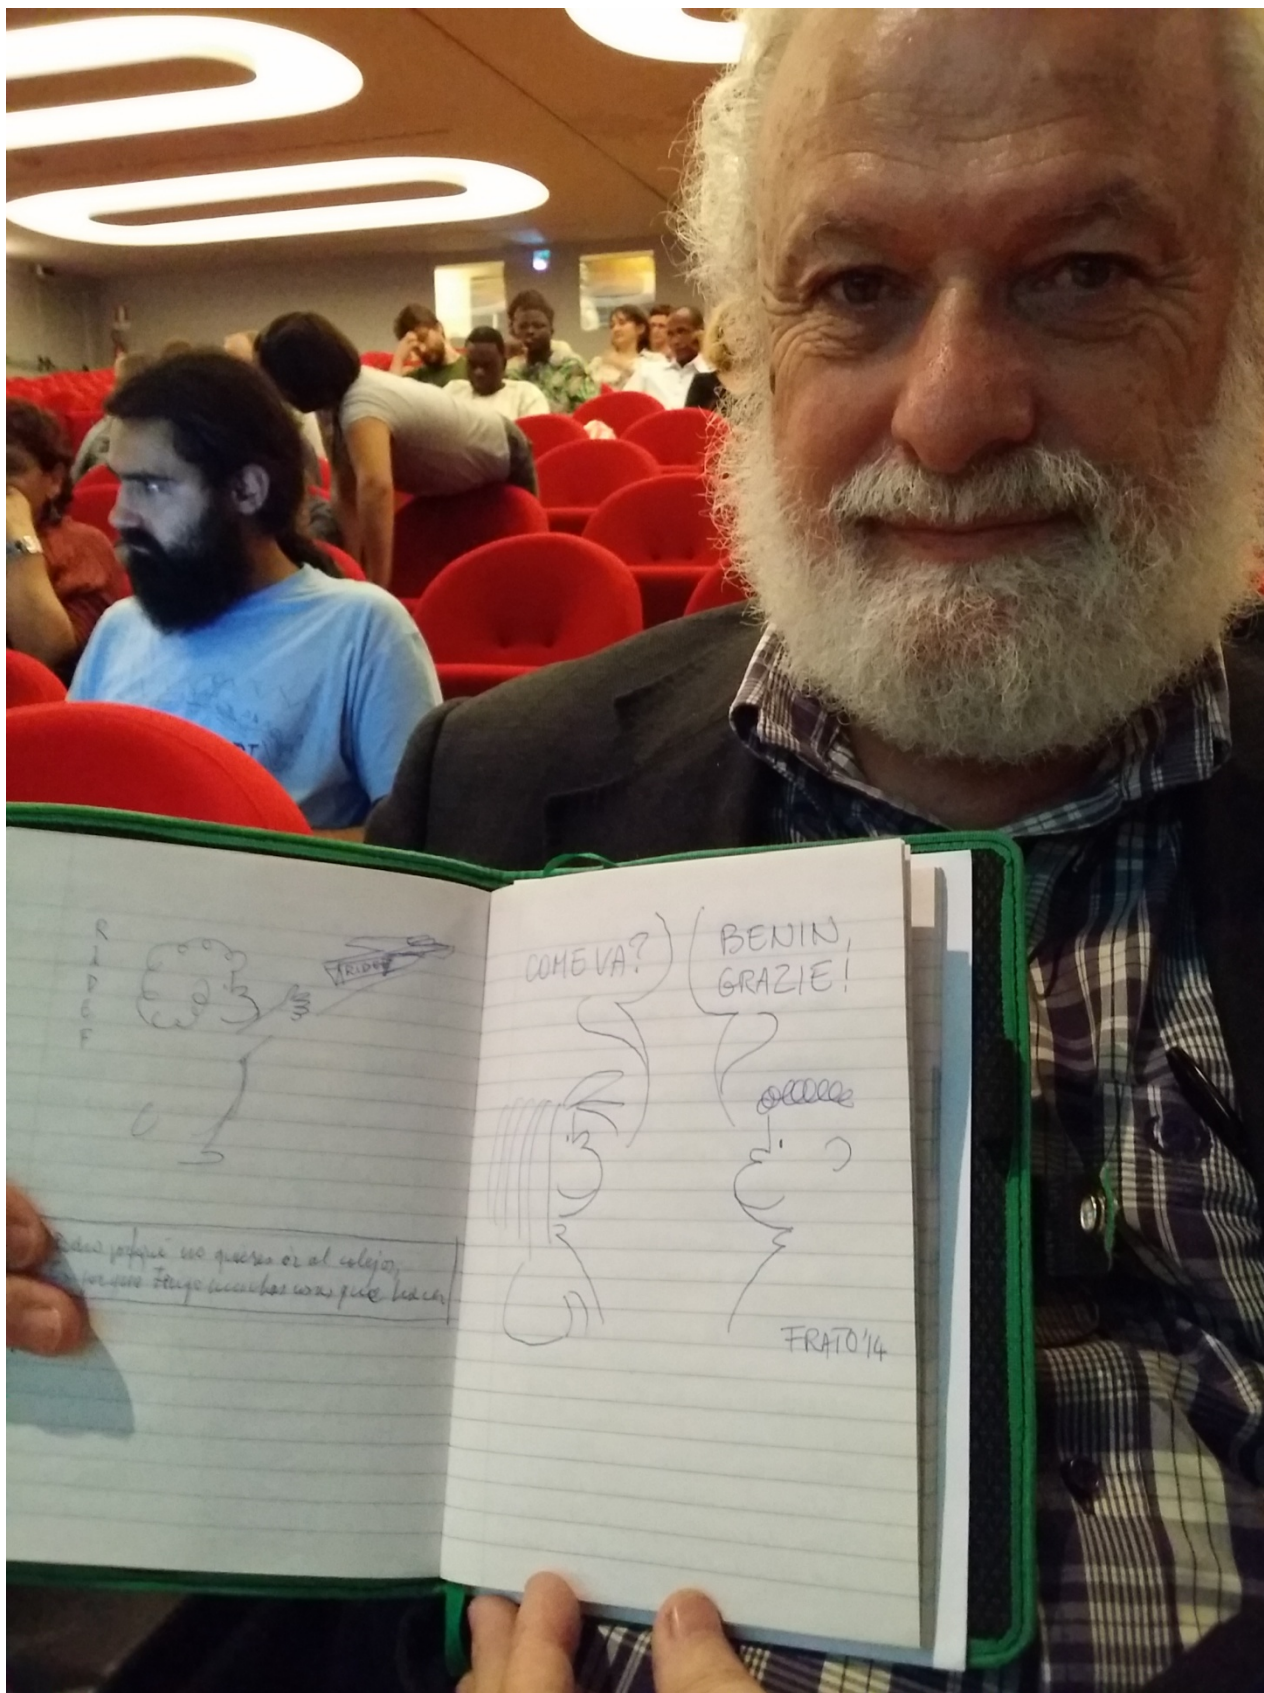 RIDEF
RIDEF
porqué no quieres ir al colejo,
porque tengo muchas cosas que hacer
COME VA?
BENIN,
GRAZIE!
FRATO '14